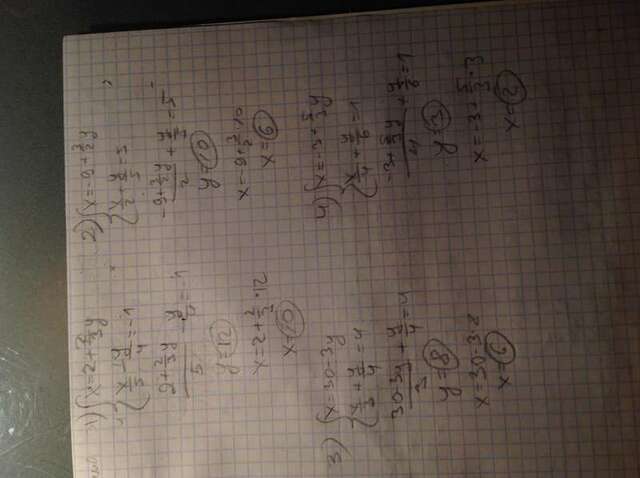 1) { x = 2 + 2/3 y
x/5 - y/4 = -1
(2 + 2/3 y)/5 - y/4 = -1
y = 12
x = 2 + 2/3 · 12
x = 10
2) { x = -9 + 3/2 y
x/2 + y/5 = 5
(-9 + 3/2 y)/2 + y/5 = 5
y = 10
x = -9 + 3/2 · 10
x = 6
3) { x = 30 - 3y
x/3 + y/4 = 4
(30 - 3y)/3 + y/4 = 4
y = 8
x = 30 - 3 · 8
x = 6
4) { x = -3 + 5/3 y
x/4 + y/6 = 1
(-3 + 5/3 y)/4 + y/6 = 1
y = 3
x = -3 + 5/3 · 3
x = 2